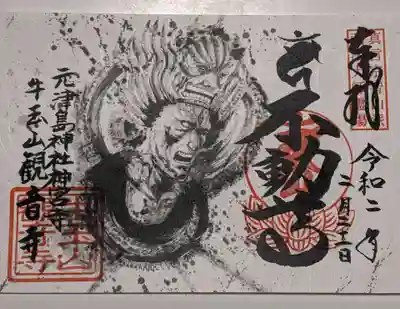 奉拝
令和二年
二月二十二日
不動
元津島神社神宮寺
牛玉山観音寺